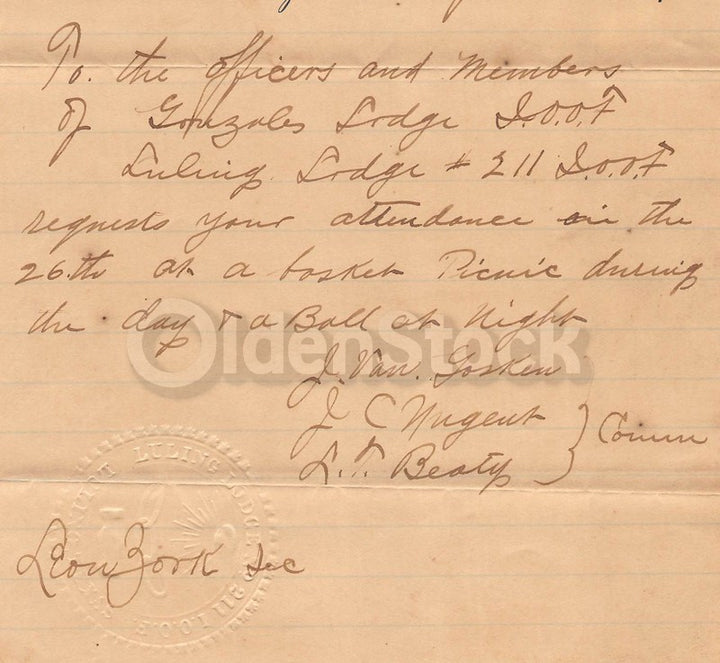 To. the officers and Members
of Gonzales Lodge I.O.O.F
Luling Lodge # 211 I.O.O.F
requests your attendance on the
26th at a basket Picnic during
the day & a Ball at Night
J. Van. Gosken
J C Nugent
L.T. Beaty
} Comm
OldenStock
LULING LODGE
211 I.O.O.F.
Leon Zork Sec